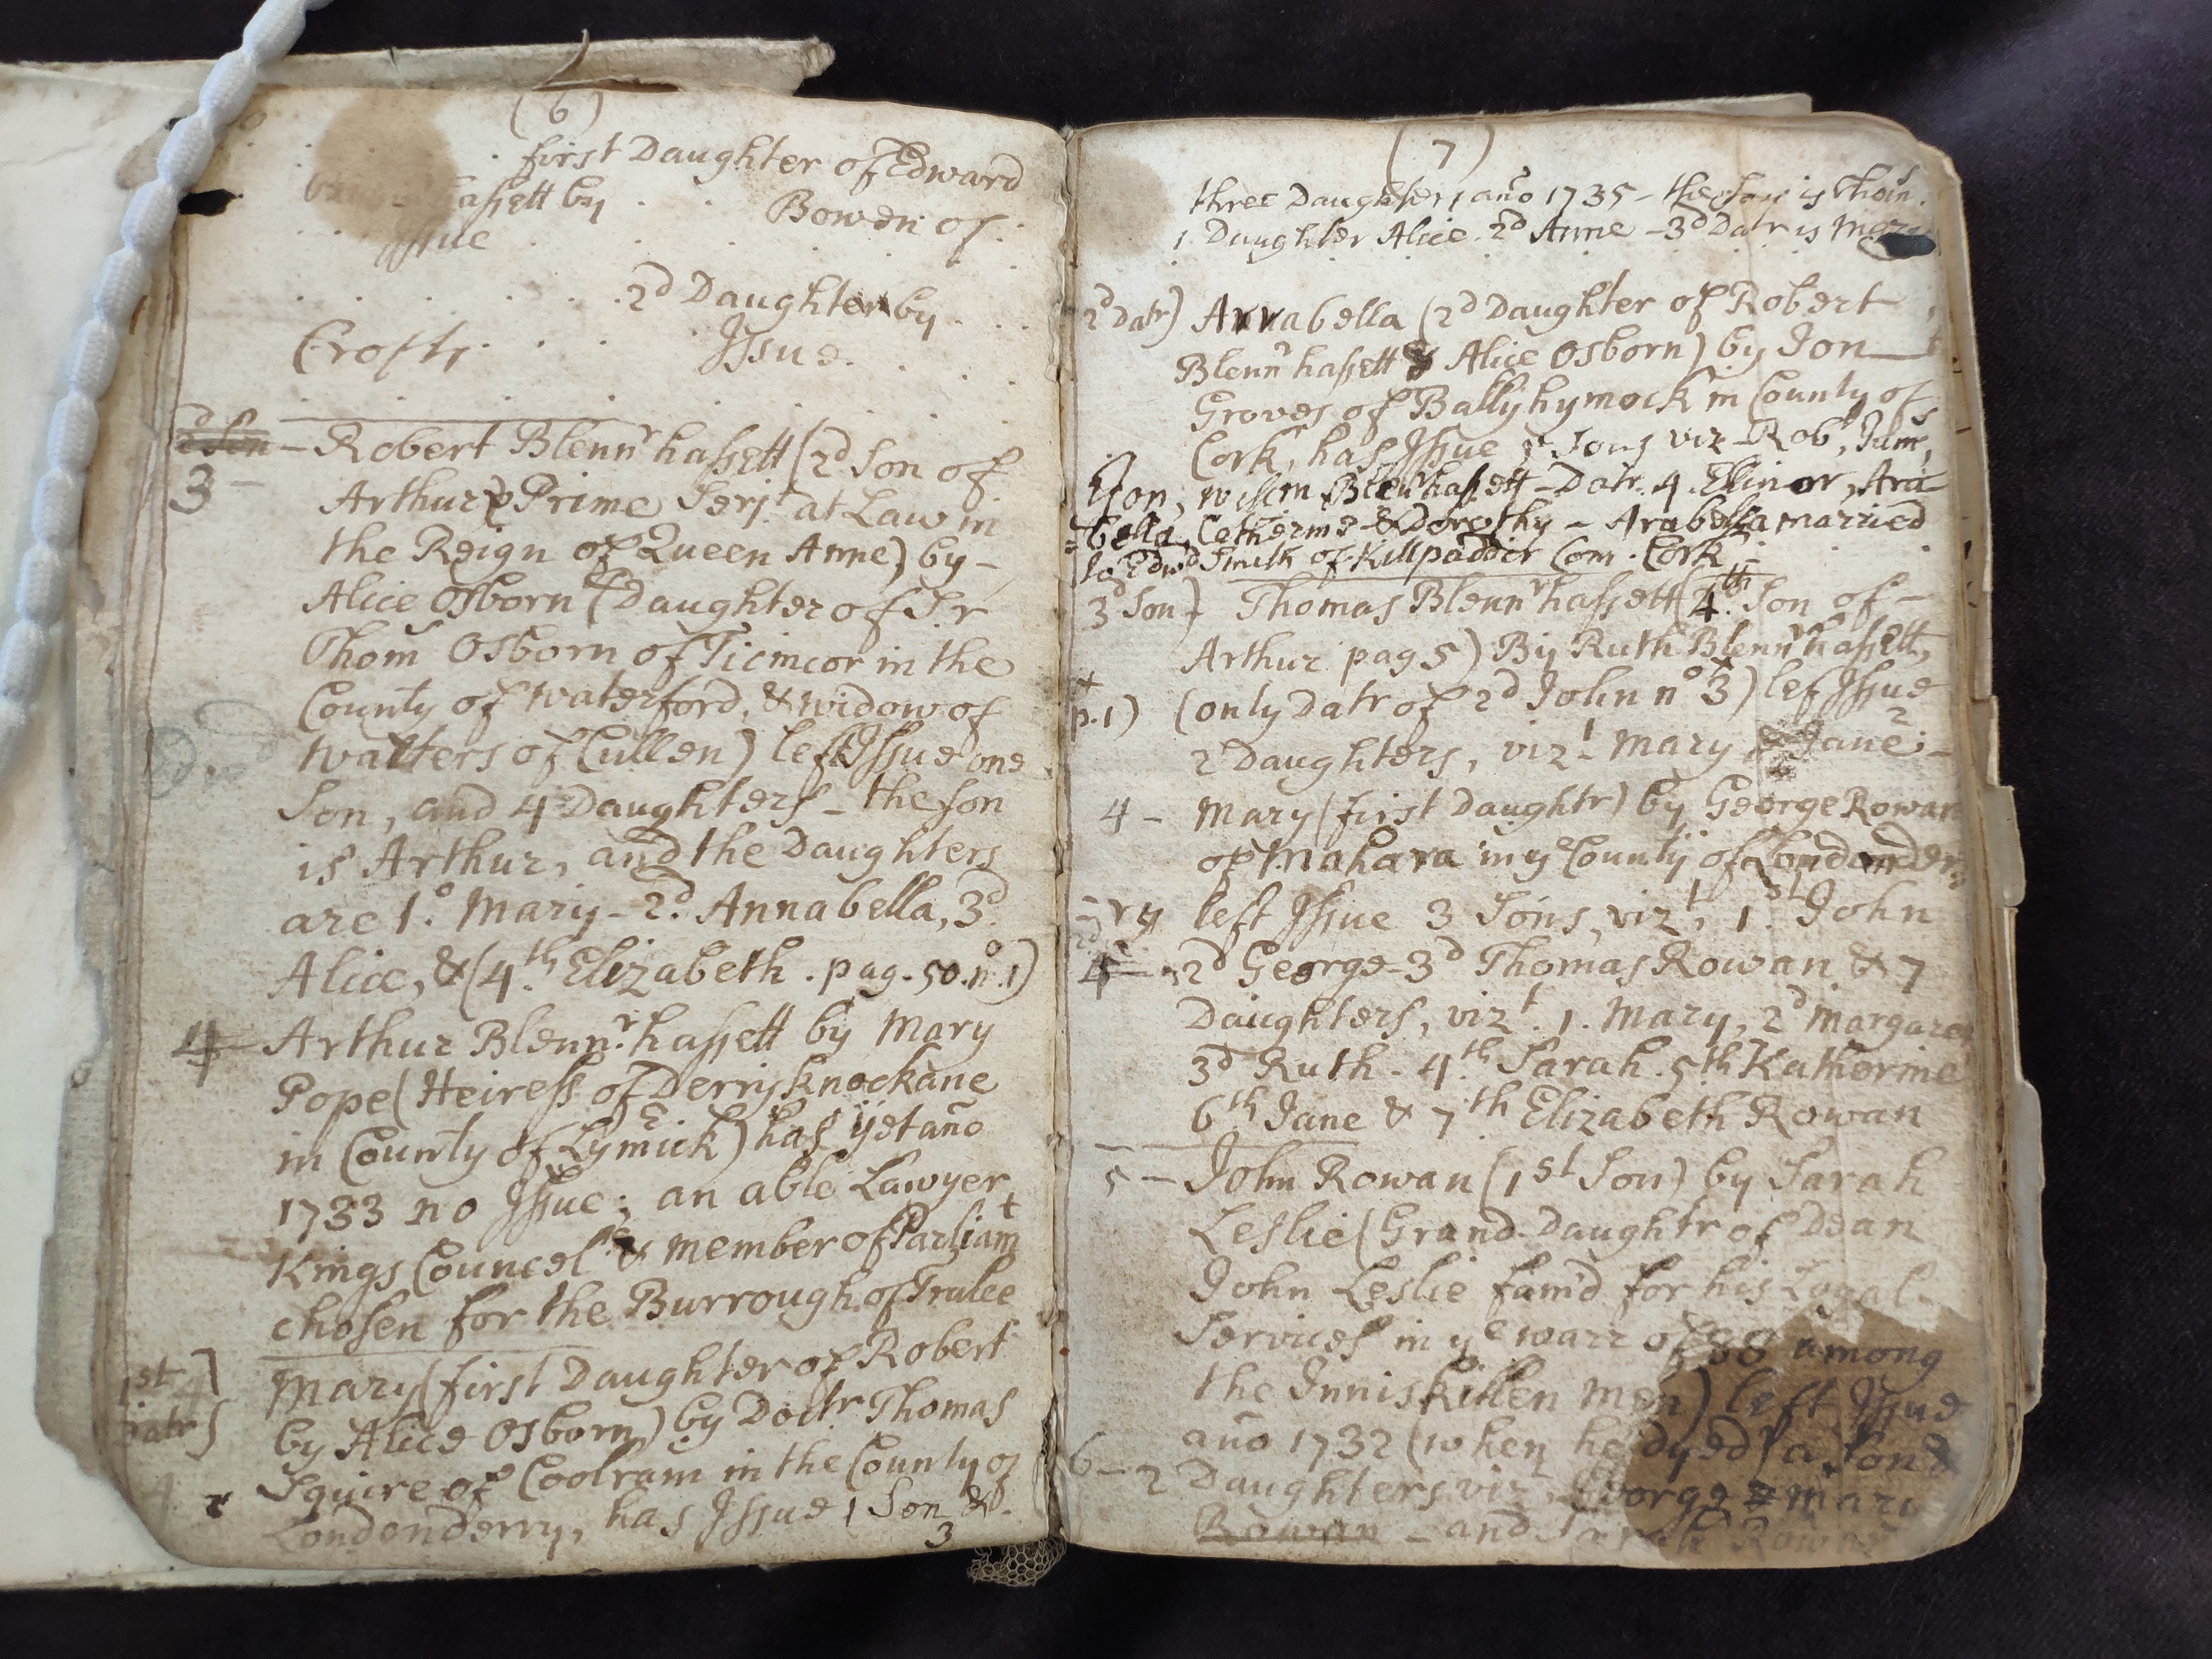 (6)
first Daughter of Edward
hassett by . . Bowen of .
Issue
2d Daughter by
Crofts . . . Issue.
2d Son - Robert Blennr hassett (2d Son of
3 - Arthur & Prime Serjt at Law in
the Reign of Queen Anne) by -
Alice Osborn (Daughter of Sr
Thom Osborn of Ticmcor in the
County of Waterford, & widow of
Walters of Cullen) left Issue one
Son, and 4 Daughters - the son
is Arthur, and the Daughters
are 1.o Mary - 2d. Annabella, 3d.
Alice, & (4.th Elizabeth . pag. 50. no. 1)
4 - Arthur Blennr. hassett by Mary
Pope (Heiress of Derrysknockane
in County of Lymrick) has yet año
1733 no Issue; an able Lawyer
Kings Councel & member of Parliamt
chosen for the Burrough of Tralee
1st Datr} Mary (first Daughter of Robert
by Alice Osborn) by Doctr Thomas
Squire of Coolram in the County of
Londonderry, has Issue 1 Son & .
3
(7)
three Daughters año 1735 - the son is Thom.
1 Daughter Alice. 2d Anne - 3d Datr is
2d Datr) Annabella (2d Daughter of Robert
Blennr hassett & Alice Osborn) by Jon
Groves of Ballyhymock in County of
Cork, has Issue Sons viz - Robt, Jams,
Jon, Willm Blenrhassett - Datr. 4. Elinor, Ara-
=bella, Catherine & Dorothy - Arabella married
to Edwd Smith of Killpadder Com. Cork
3d Son) Thomas Blennr hassett (4th. Son of -
Arthur pag 5) By Ruth Blennr hassett,
+ p. 1) (only Datr of 2d John no 3) lef Issue
2 Daughters, vizt 1 Mary & Jane 2 -
4 - Mary (first Daughtr) by George Rowan
of Mahara in ye County of Londonder
-ry left Issue 3 Sons, vizt, 1.st John
2d George - 3d Thomas Rowan & 7
Daughters, vizt. 1. Mary, 2d Margaret
3d Ruth. 4.th Sarah. 5th Katherine
6th Jane & 7th Elizabeth Rowan
5 - John Rowan (1st Son) by Sarah
Leslie (Grand-Daughtr of Dean
John Leslie fam'd for his Loyal
Services in ye warr of 88 among
the Inniskillen Men) left Issue
año 1732 (when he dyed) a Son &
6 - 2 Daughters viz George & Mary
Rowan - and Sarah Rowan